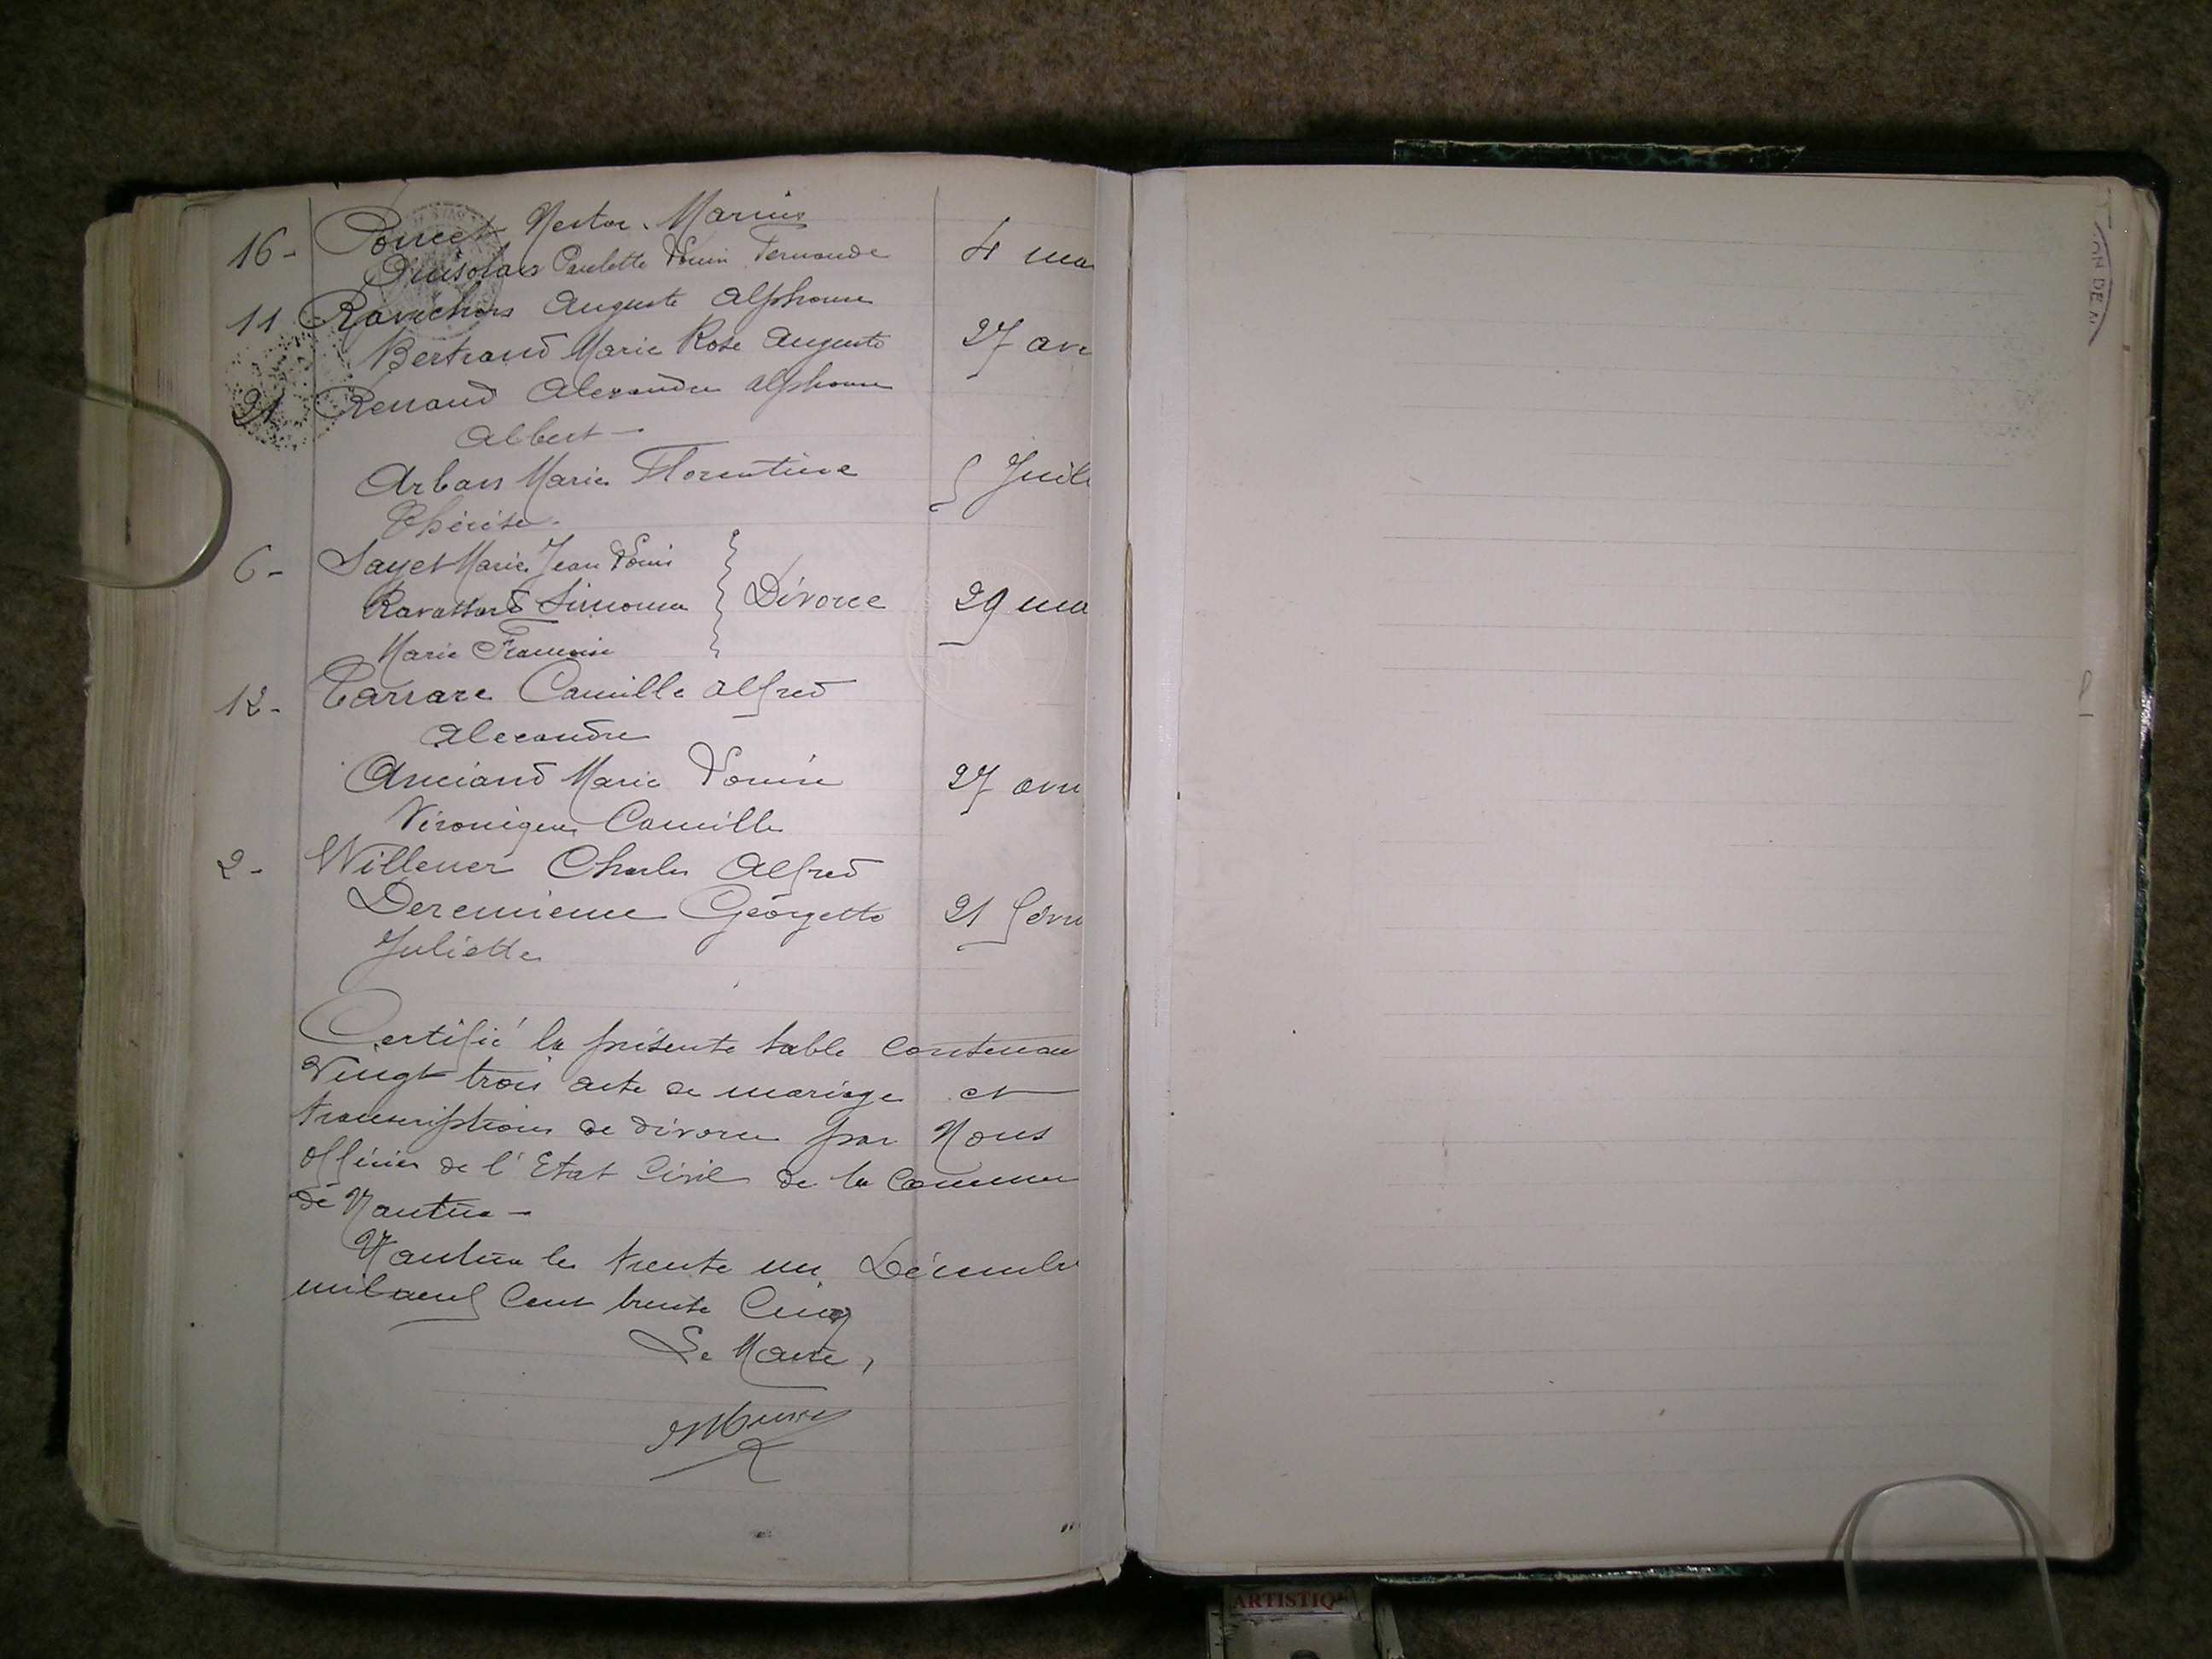 16 - Poncet Nestor Marius
Paulette Louise Fernande 4 mai
11 Ravichon Auguste Alphonse
Bertrand Marie Rose Augusta 27 avr
21 Renaud Alexandre Alphonse
Albert -
Arban Marie Florentine Juil
Thérèse -
6 - Sayet Marie Jean Louis
Ravassard Simonne } Divorce 29 ma
Marie Françoise
12 - Carrare Camille Alfred
Alexandre
Anciand Marie Louise 27 avri
Véronique Camille
2 - Willener Charles Alfred
Georgette 21 févri
Juliette
Certifié la présente table contenan
Vingt trois acte de mariage et
transcriptions de divorce par Nous
officier de l'Etat Civil de la Commune
de Nantua -
Nantua le trente un Décembr
mil neuf cent trente Cinq
Le Maire,
ARTISTIQ